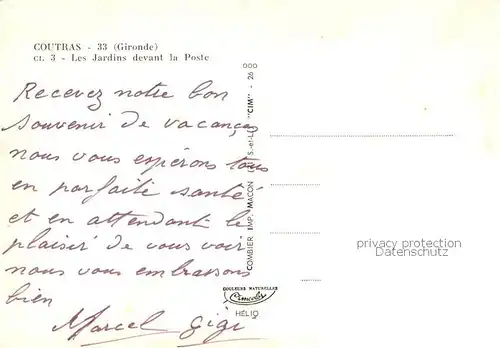 COUTRAS - 33 (Gironde)
Cl. 3 - Les Jardins devant la Poste
Recevez notre bon
souvenir de vacances
nous vous espérons tous
en parfaite santé
et en attendant le
plaisir de vous voir
nous vous embrassons
bien
Marcel Gigi
COMBIER IMP. MACON (S.-et-L.) "CIM" - 26 000
COULEURS NATURELLES
Cimcolor
HÉLIO
privacy protection
Datenschutz